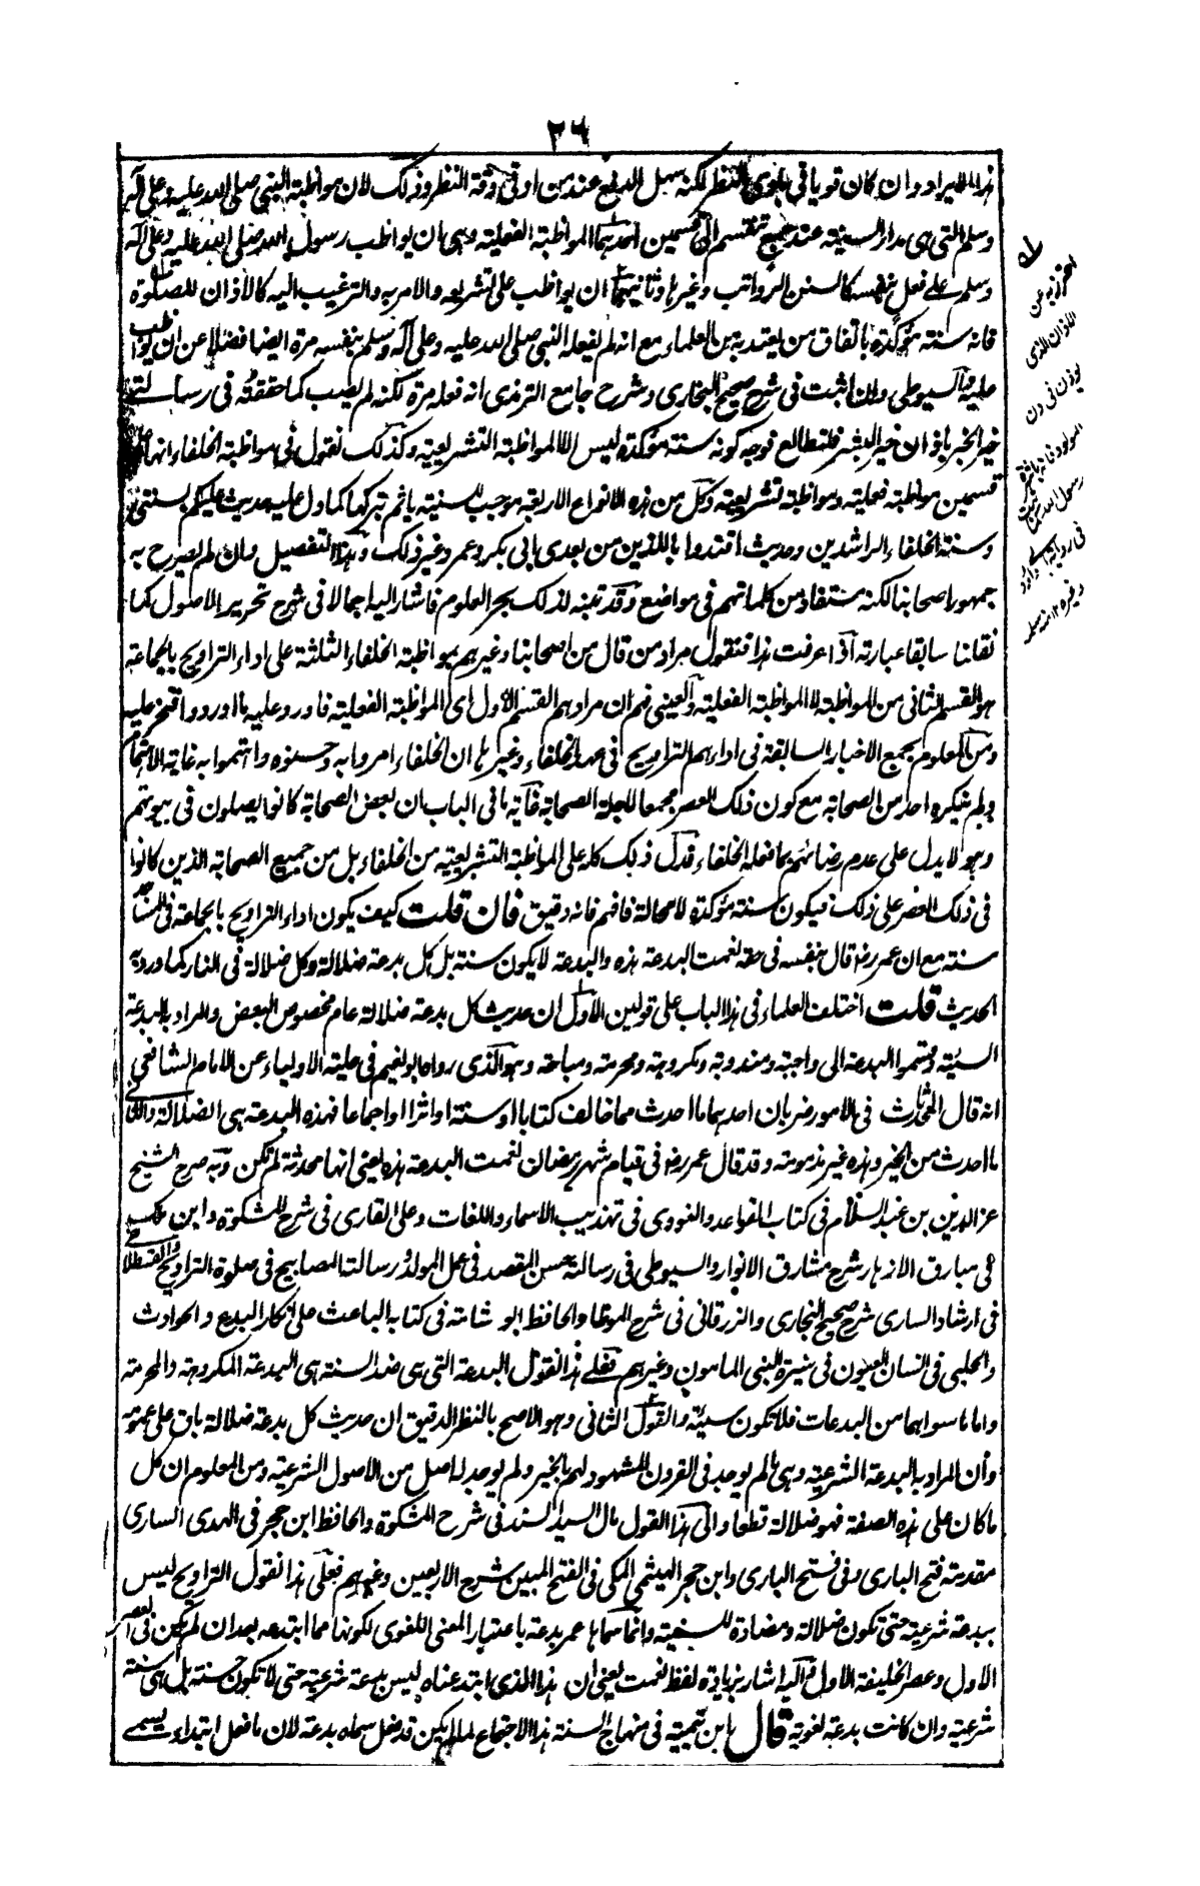 ٢٦
هذا الايراد وان كان قويا في بادي النظر لكنه سهل الدفع عند من اوتي دقة النظر وذلك لان مواظبة النبي صلى الله عليه وعلى آله
وسلم التي هي مدار السنية عند جميع تنقسم الى قسمين احدهما المواظبة الفعلية وهي ان يواظب رسول الله صلى الله عليه وعلى آله
وسلم على فعل بنفسه كالسنن الرواتب وغيرها وثانيتهما ان يواظب على تشريعه والامر به والترغيب اليه كالاذان للصلوة
فانه سنة مؤكدة باتفاق من يعتد به من العلماء مع انه لم يفعله النبي صلى الله عليه وعلى آله وسلم بنفسه مرة ايضا فضلا عن ان يواظب
عليه والسيوطي وان اثبت في شرح صحيح البخاري وشرح جامع الترمذي انه فعله مرة لكنه لم يصب كما حققته في رسالتي
خير الخبر باذان خير البشر فلتطالع فوجه كونه سنة مؤكدة ليس الا المواظبة التشريعية وكذلك نقول في مواظبة الخلفاء انها على
قسمين مواظبة فعلية ومواظبة تشريعية وكل من هذه الانواع الاربعة موجب للسنية يأثم بتركها كما دل عليه حديث عليكم بسنتي
وسنة الخلفاء الراشدين وحديث اقتدوا باللذين من بعدي ابي بكر وعمر وغير ذلك وهذا التفصيل وان لم يصرح به
جمهور اصحابنا لكنه مستفاد من كلماتهم في مواضع وقد تنبه لذلك بحر العلوم فاشار اليه اجمالا في شرح تحرير الاصول كما
نقلنا سابقا عبارته اذا عرفت هذا فنقول مراد من قال من اصحابنا وغيرهم بمواظبة الخلفاء الثلثة على اداء التراويح بالجماعة
هو القسم الثاني من المواظبة لا المواظبة الفعلية والعيني فهم ان مرادهم القسم الاول اي المواظبة الفعلية فاورد عليه ما اورد واقتحم عليه
ومن المعلوم بجميع الاخبار السابقة في ادائهم التراويح في عهد الخلفاء وغيرها ان الخلفاء امروا به وحسنوه واهتموا به غاية الاهتمام
ولم ينكره احد من الصحابة مع كون ذلك العصر مجمعا لجلة الصحابة غاية ما في الباب ان بعض الصحابة كانوا يصلون في بيوتهم
وهو لا يدل على عدم رضائهم بما فعله الخلفاء فدل ذلك كله على المواظبة التشريعية من الخلفاء بل من جميع الصحابة الذين كانوا
في ذلك العصر على ذلك فيكون سنة مؤكدة لا محالة فافهم فانه دقيق فان قلت كيف يكون اداء التراويح بالجماعة في المساجد
سنة مع ان عمر رضـ قال بنفسه في حقه نعمت البدعة هذه والبدعة لا يكون سنة بل كل بدعة ضلالة وكل ضلالة في النار كما ورد به
الحديث قلت اختلف العلماء في هذا الباب على قولين الاول ان حديث كل بدعة ضلالة عام مخصوص البعض والمراد بالبدعة
السيئة وقسموا البدعة الى واجبة ومندوبة ومكروهة ومحرمة ومباحة وهو الذي رواه ابو نعيم في حلية الاولياء عن الامام الشافعي
انه قال المحدثات في الامور ضربان احدهما ما احدث مما خالف كتابا او سنة او اثرا او اجماعا فهذه البدعة هي الضلالة والثاني
ما احدث من الخير وهذه غير مذمومة وقد قال عمر رضـ في قيام شهر رمضان نعمت البدعة هذه يعني انها محدثة لم تكن وبه صرح الشيخ
عز الدين بن عبد السلام في كتاب القواعد والنووي في تهذيب الاسماء واللغات وعلي القاري في شرح المشكوة وابن ملك
في مبارق الازهار شرح مشارق الانوار والسيوطي في رسالته حسن المقصد في عمل المولد ورسالته المصابيح في صلوة التراويح والقسطلاني
في ارشاد الساري شرح صحيح البخاري والزرقاني في شرح الموطا والحافظ ابو شامة في كتابه الباعث على انكار البدع والحوادث
والحلبي في انسان العيون في سيرة النبي المامون وغيرهم فعلى هذا القول البدعة التي هي ضد السنة هي البدعة المكروهة والمحرمة
واما ما سواهما من البدعات فلا تكون سيئة والقول الثاني وهو الاصح بالنظر الدقيق ان حديث كل بدعة ضلالة باق على عمومه
وأن المراد به البدعة الشرعية وهي ما لم يوجد في القرون المشهود لهم بالخير ولم يوجد له اصل من الاصول الشرعية ومن المعلوم ان كل
ما كان على هذه الصفة فهو ضلالة قطعا والى هذا القول مال السيد السند في شرح المشكوة والحافظ ابن حجر في الهدى الساري
مقدمة فتح الباري وفي فتح الباري وابن حجر الهيثمي المكي في الفتح المبين شرح الاربعين وغيرهم فعلى هذا نقول التراويح ليس
ببدعة شرعية حتى تكون ضلالة ومضادة للسنية وانما سماها عمر بدعة باعتبار المعنى اللغوي لكونها مما ابتدعه بعد ان لم يكن في العصر
الاول وعصر الخليفة الاول واليه اشار بزيادة لفظ نعمت يعني ان هذا الذي ابتدعناه ليس بدعة شرعية حتى لا تكون حسنة بل هي سنة
شرعية وان كانت بدعة لغوية قال ابن تيمية في منهاج السنة هذا الاجتماع لما لم يكن قد فعل سماه بدعة لان ما فعل ابتداء يسمى
احترز به عن
الاذان الذي
يوذن في اذن
المولود فانه باشره
رسول الله كما ثبت
في رواية ابي داود
وغيره ١٢ منه سلمه